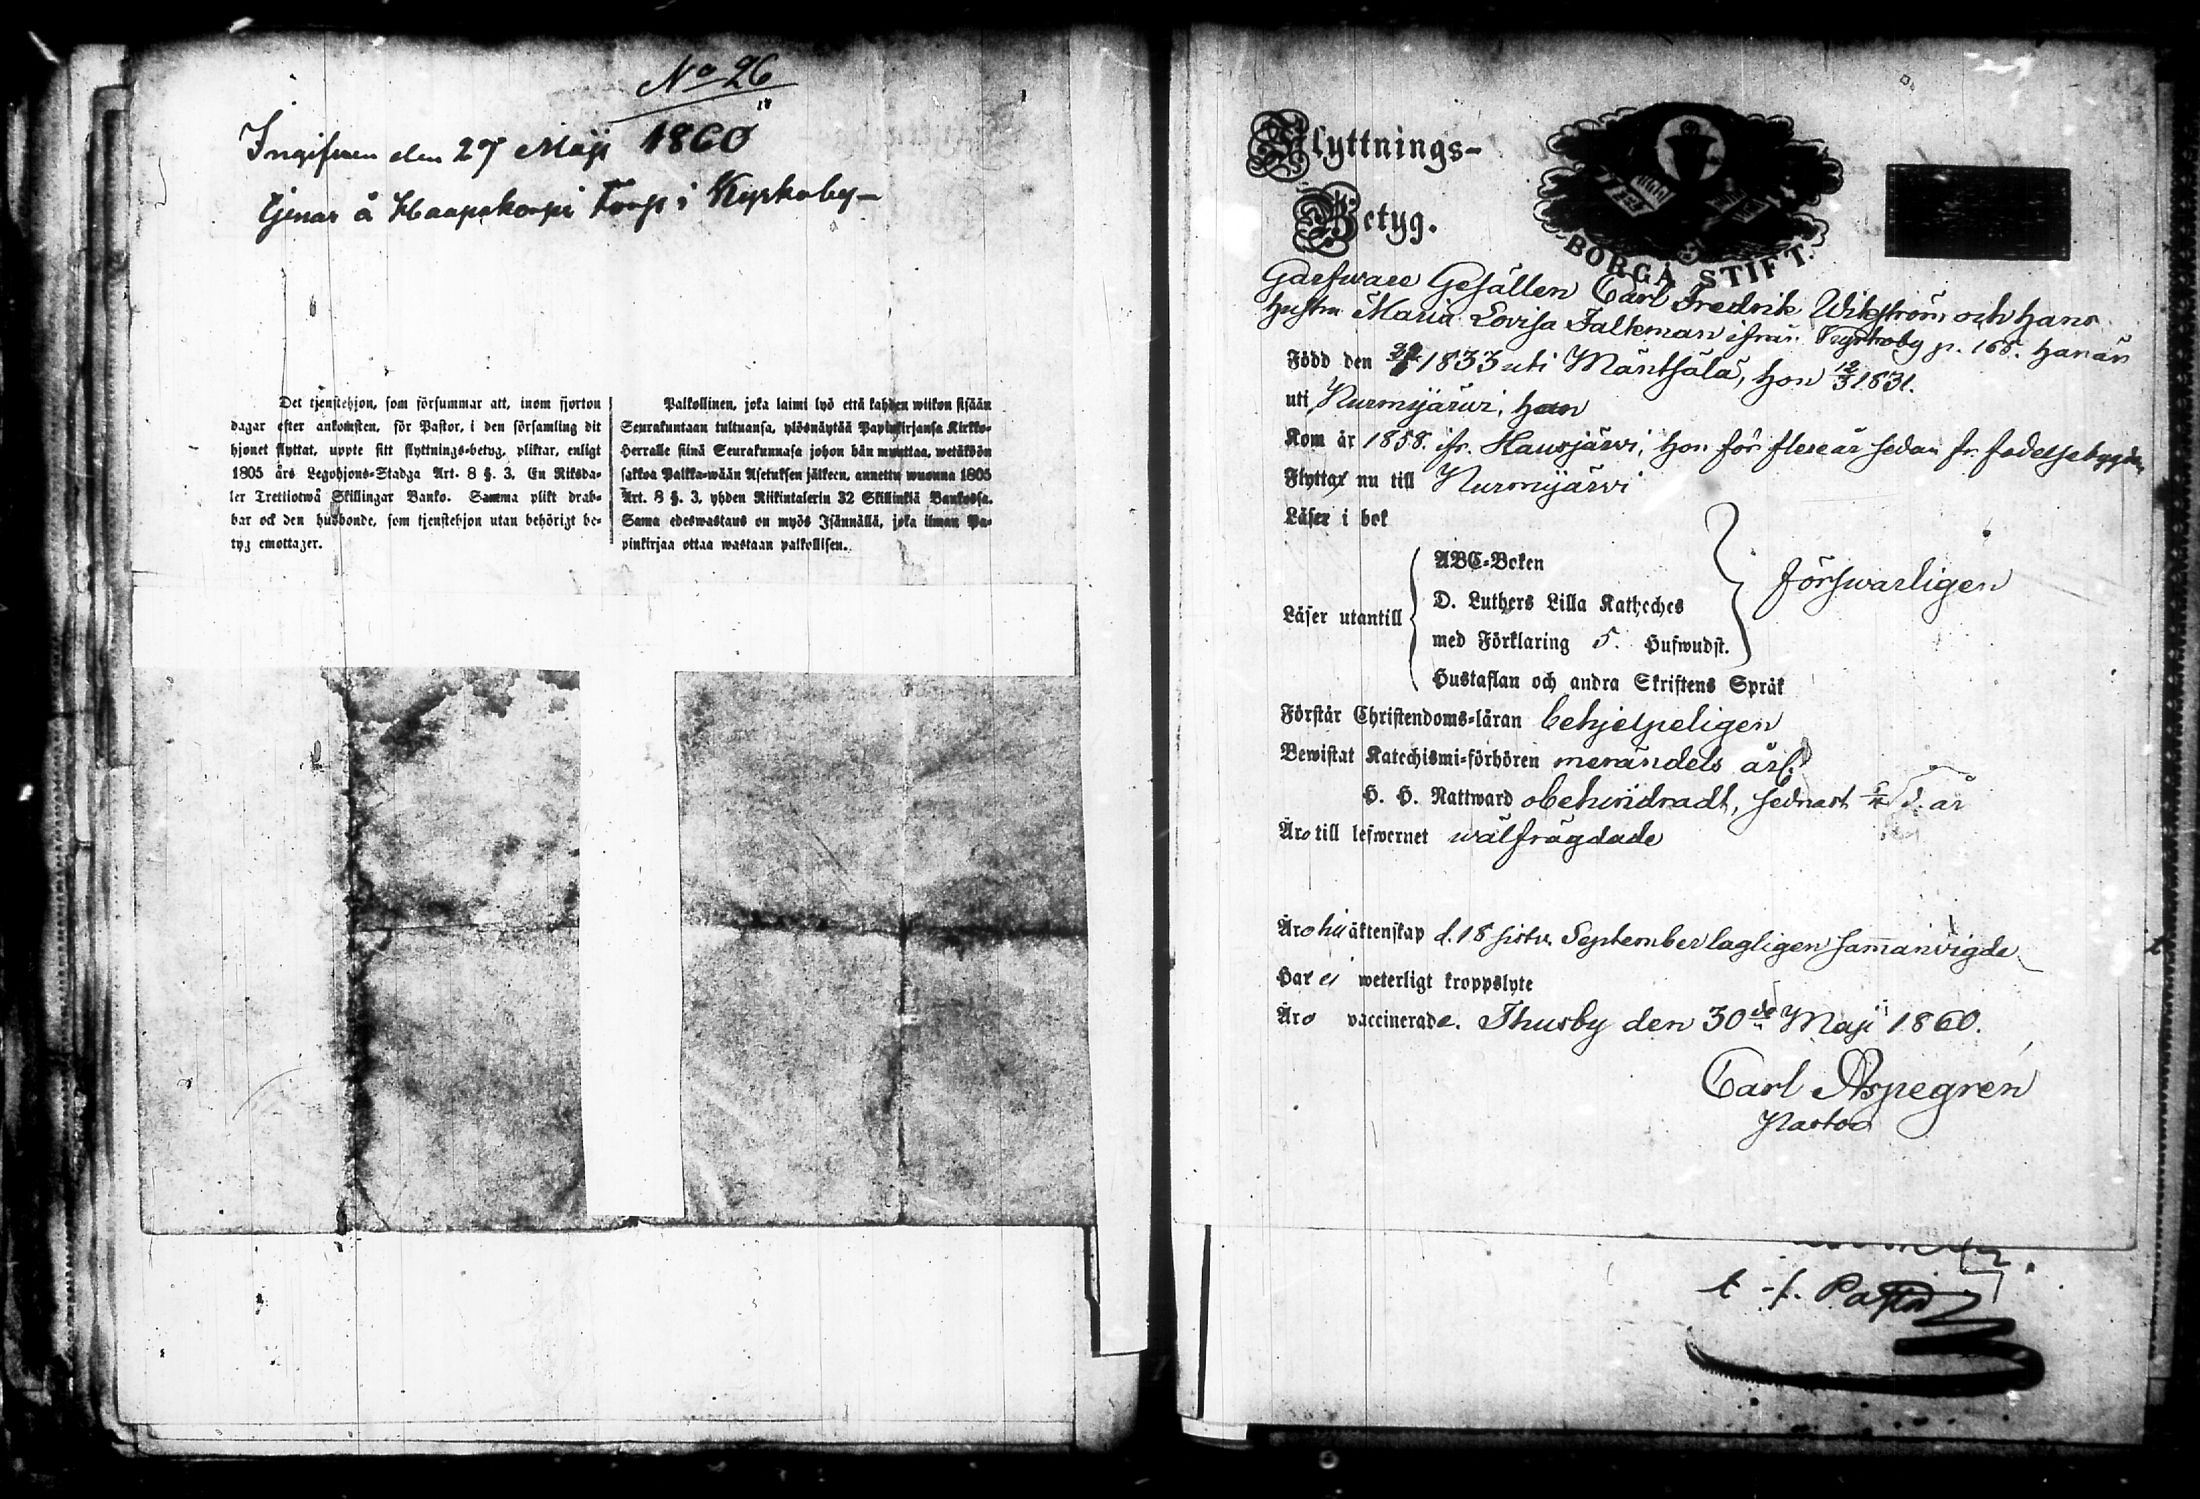 No 26
Ingifven den 27 Maji 1860
tjenar å Haapakorpi Torp i Kyrkoby
Det tjenstehjon, som försummar att, inom fjorton
dagar efter ankomsten, för Pastor, i den församling dit
hjonet flyttat, uppte sitt flyttnings-betyg, pliktar, enligt
1805 års Legohjons-Stadga Art. 8 §. 3. En Riksda-
ler Trettiotwå Skillingar Banko. Samma plikt drab-
bar ock den husbonde, som tjenstehjon utan behörigt be-
tyg emottager.
Palkollinen, joka laimi lyö että kahden wiikon sisään
Seurakuntaan tultuansa, ylösnäytää Papinkirjansa Kirkko-
Herralle siinä Seurakunnasa johon hän muuttaa, wetäköön
sakkoa Palkka-wään Asetuksen jälkeen, annettu wuonna 1805
Art. 8 §. 3. yhden Riikintalerin 32 Skillinkiä Bankossa.
Sama edeswastaus on myös Isännällä, joka ilman Pa-
pinkirjaa ottaa wastaan palkollisen.
Flyttnings-
Betyg.
BORGÅ STIFT.
Garfware Gesällen Carl Fredrik Wikström och hans
hustru Maria Lovisa Falkman ifrån Kyrkoby p. 165. han är
Född den 1833 uti Mäntsälä, hon 12/3 1831.
uti Nurmijärwi, han
Kom år 1858. ifr. Hausjärwi, hon för flere år sedan fr. födelsebygden
Flyttar nu till Nurmijärwi
Läser i bok
Läser utantill
ABC-Boken
D. Luthers Lilla Katheches
med Förklaring 5. Hufwudst.
Hustaflan och andra Skriftens Språk
försvarligen
Förstår Christendoms-läran behjelpeligen
Bewistat Katechismi-förhören merändels årl.
H. H. Nattward obehindradt, sednast d. år
Äro till lefwernet wälfrägdade
Äro hit äktenskap d. 18 sistl. September lagligen sammanvigde
Har ei weterligt kroppslyte
Äro vaccinerade. Thusby den 30de Maji 1860.
Carl Aspegren
Pastor
t. f. Pastor